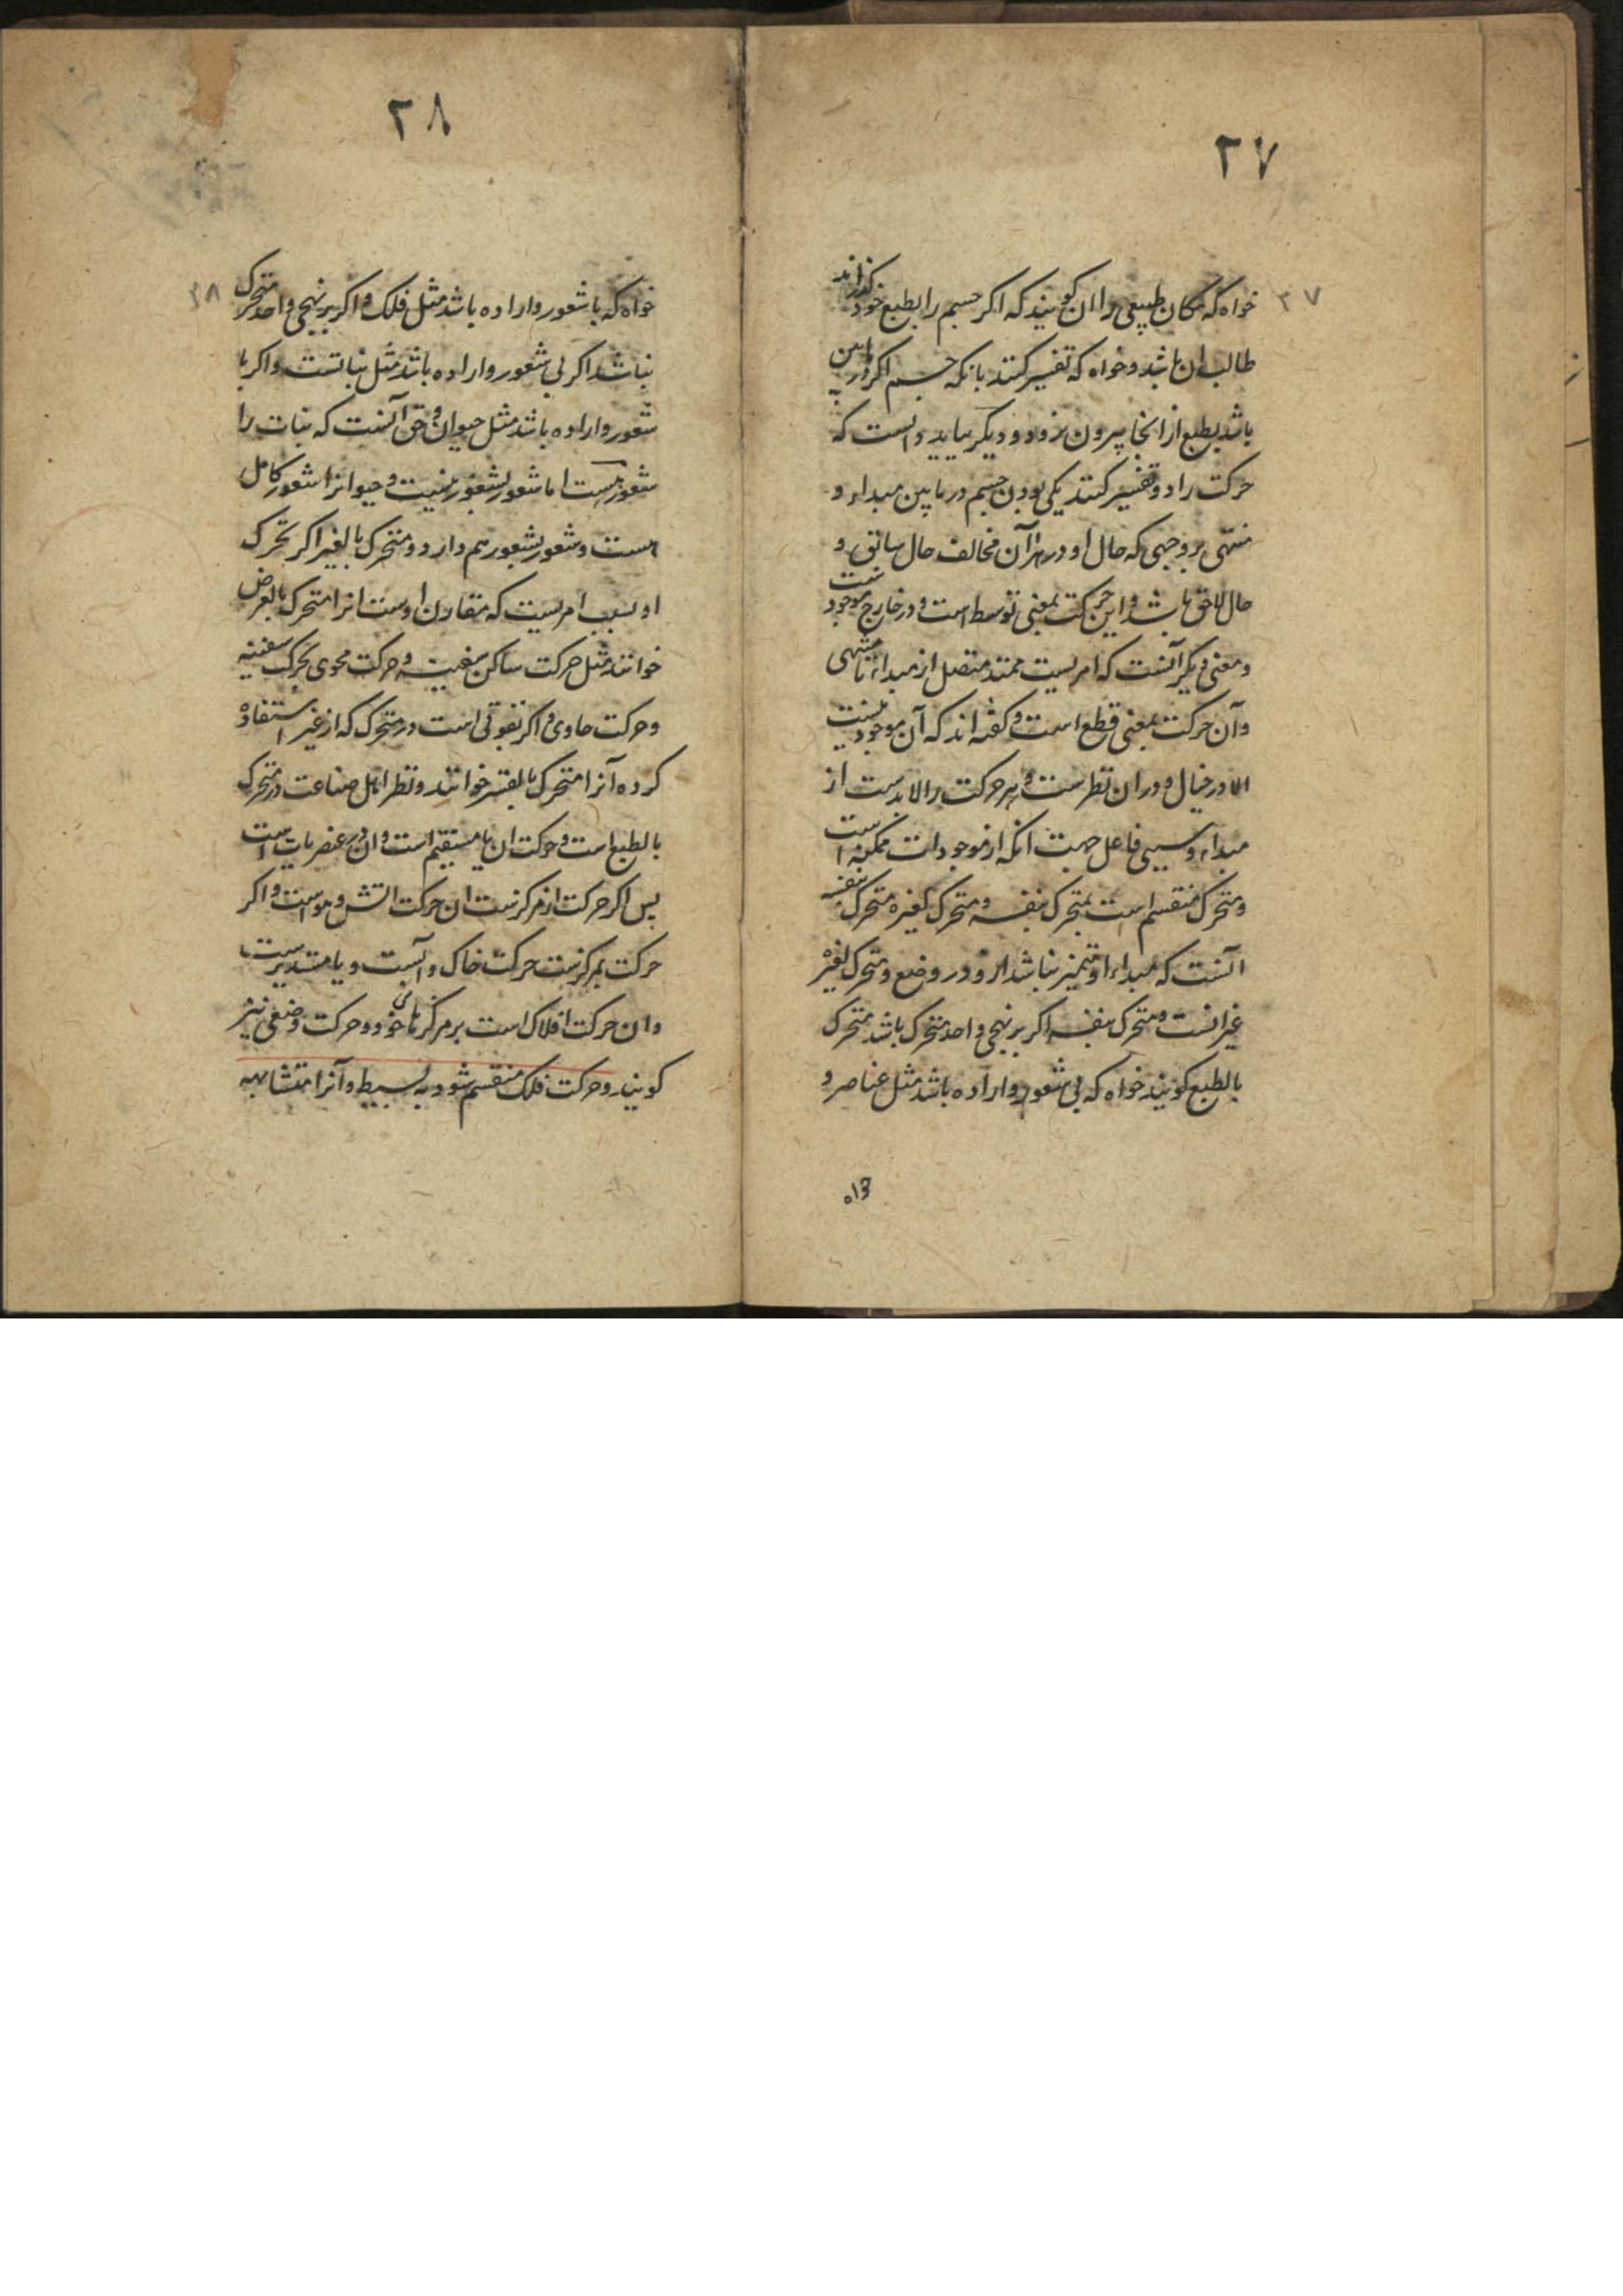 ۲۷
۲۷
خواه که مکان طبیعی را ان کویند که اکر جسم را بطبع خود کذراند
طالب ان باشد و خواه که تفسیر کنند بانکه جسم اکر در این
باشد بطبع از انجا بیرون نرود و دیکر بباید دانست که
حرکت را دو تفسیر کنند یکی بودن جسم در مابین مبداء و
منتهی بر وجهی که حال او در هر آن مخالف حال سابق و
حال لاحق باشد و این حرکت بمعنی توسط است و در خارج موجود ست
و معنی دیکر آنست که امریست ممتد متصل از مبداء تا منتهی
و آن حرکت بمعنی قطع است و کفته اند که آن موجود نیست
الا در خیال و در ان نظرست و هر حرکت را لابدست از
مبداء و سببی فاعل جهت انکه از موجودات ممکنه است
و متحرک منقسم است بمتحرک بنفسه و متحرک لغیره متحرک بنفسه
آنست که مبداء او متمیز نباشد ازو در وضع و متحرک لغیره
غیر انست و متحرک بنفسه اکر بر نهجی واحد متحرک باشد متحرک
بالطبع کویند خواه که بی شعور و اراده باشد مثل عناصر و
خواه
۲۸
۲۸
خواه که با شعور و اراده باشد مثل فلک و اکر بر نهجی واحد متحرک
نباشد اکر بی شعور و اراده باشد مثل نباتست و اکر با
شعور و اراده باشد مثل حیوان و حق آنست که نبات را
شعور هست اما شعور بشعور نیست و حیوانرا شعور کامل
هست و شعور بشعور هم دارد و متحرک بالغیر اکر تحرک
او بسبب امریست که مقارن اوست انرا متحرک بالعرض
خوانند مثل حرکت ساکن سفینه و حرکت محوی بحرکت سفینه
و حرکت حاوی و اکر بقوتی است در متحرک که از غیر استفاده
کرده آنرا متحرک بالقسر خوانند و نظر اهل صناعت در متحرک
بالطبع است و حرکت ان یا مستقیم است و ان در عنصریات است
پس اکر حرکت از مرکزست ان حرکت اتش و هواست و اکر
حرکت بمرکزست حرکت خاک و آبست و یا مستدیرست
و ان حرکت افلاک است بر مرکزهای خود و حرکت وضعی نیز
کویند و حرکت فلک منقسم شود به بسیط و آنرا متشابهه